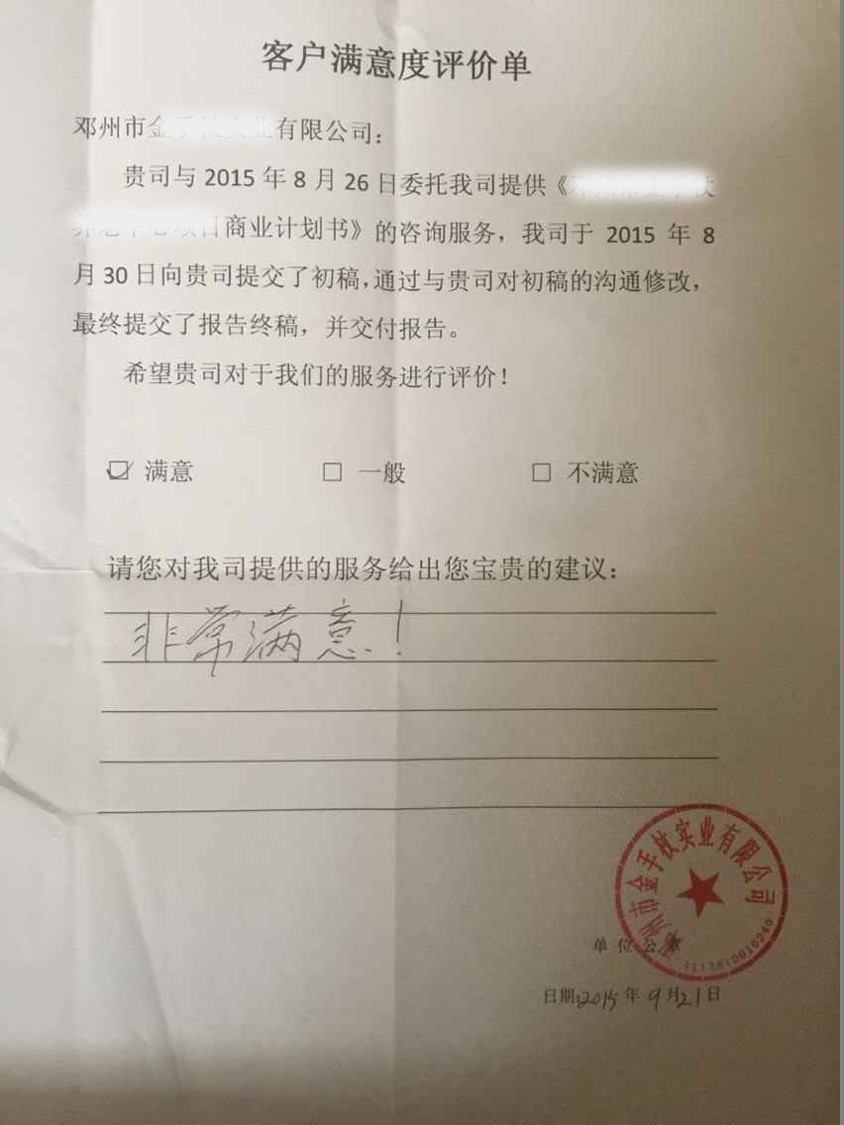 客户满意度评价单
邓州市金手杖实业有限公司：
贵司与 2015 年 8 月 26 日委托我司提供《
商业计划书》的咨询服务，我司于 2015 年 8
月 30 日向贵司提交了初稿，通过与贵司对初稿的沟通修改，
最终提交了报告终稿，并交付报告。
希望贵司对于我们的服务进行评价！
☑ 满意 □ 一般 □ 不满意
请您对我司提供的服务给出您宝贵的建议：
非常满意！
邓州市金手杖实业有限公司
单位公章
日期：2015 年 9 月 21 日